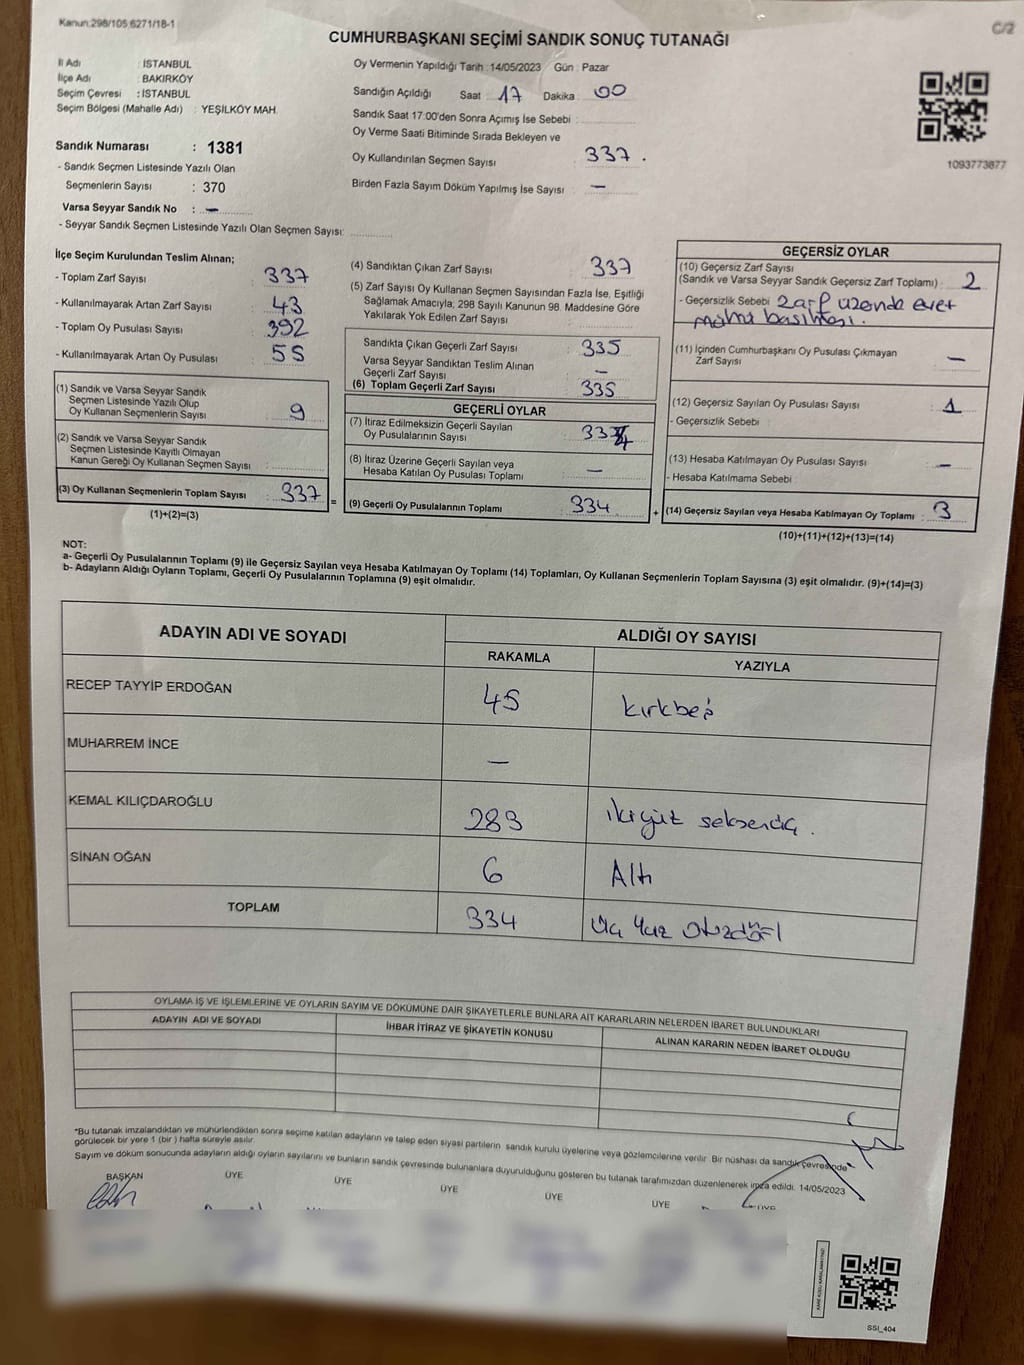 Kanun:298/105;6271/18-1
C/2
CUMHURBAŞKANI SEÇİMİ SANDIK SONUÇ TUTANAĞI
İl Adı : İSTANBUL
İlçe Adı : BAKIRKÖY
Seçim Çevresi : İSTANBUL
Seçim Bölgesi (Mahalle Adı) : YEŞİLKÖY MAH.
Sandık Numarası : 1381
- Sandık Seçmen Listesinde Yazılı Olan
Seçmenlerin Sayısı : 370
Varsa Seyyar Sandık No : —
- Seyyar Sandık Seçmen Listesinde Yazılı Olan Seçmen Sayısı:
Oy Vermenin Yapıldığı Tarih : 14/05/2023 Gün : Pazar
Sandığın Açıldığı Saat 17 Dakika 00
Sandık Saat 17:00'den Sonra Açımış İse Sebebi :
Oy Verme Saati Bitiminde Sırada Bekleyen ve
Oy Kullandırılan Seçmen Sayısı : 337 .
Birden Fazla Sayım Döküm Yapılmış İse Sayısı : —
1093773877
İlçe Seçim Kurulundan Teslim Alınan;
- Toplam Zarf Sayısı : 337
- Kullanılmayarak Artan Zarf Sayısı : 43
- Toplam Oy Pusulası Sayısı : 392
- Kullanılmayarak Artan Oy Pusulası : 55
(1) Sandık ve Varsa Seyyar Sandık
Seçmen Listesinde Yazılı Olup
Oy Kullanan Seçmenlerin Sayısı : 9
(2) Sandık ve Varsa Seyyar Sandık
Seçmen Listesinde Kayıtlı Olmayan
Kanun Gereği Oy Kullanan Seçmen Sayısı :
(3) Oy Kullanan Seçmenlerin Toplam Sayısı : 337
(1)+(2)=(3)
(4) Sandıktan Çıkan Zarf Sayısı : 337
(5) Zarf Sayısı Oy Kullanan Seçmen Sayısından Fazla İse, Eşitliği
Sağlamak Amacıyla; 298 Sayılı Kanunun 98. Maddesine Göre
Yakılarak Yok Edilen Zarf Sayısı :
Sandıkta Çıkan Geçerli Zarf Sayısı : 335
Varsa Seyyar Sandıktan Teslim Alınan
Geçerli Zarf Sayısı : —
(6) Toplam Geçerli Zarf Sayısı : 335
GEÇERLİ OYLAR
(7) İtiraz Edilmeksizin Geçerli Sayılan
Oy Pusulalarının Sayısı : 334
(8) İtiraz Üzerine Geçerli Sayılan veya
Hesaba Katılan Oy Pusulası Toplamı : —
= (9) Geçerli Oy Pusulalarının Toplamı : 334
GEÇERSİZ OYLAR
(10) Geçersiz Zarf Sayısı
(Sandık ve Varsa Seyyar Sandık Geçersiz Zarf Toplamı) : 2
- Geçersizlik Sebebi : Zarf üzerinde evet
mührü basılması.
(11) İçinden Cumhurbaşkanı Oy Pusulası Çıkmayan
Zarf Sayısı : —
(12) Geçersiz Sayılan Oy Pusulası Sayısı : 1
- Geçersizlik Sebebi :
(13) Hesaba Katılmayan Oy Pusulası Sayısı : —
- Hesaba Katılmama Sebebi :
+ (14) Geçersiz Sayılan veya Hesaba Katılmayan Oy Toplamı : 3
(10)+(11)+(12)+(13)=(14)
NOT:
a- Geçerli Oy Pusulalarının Toplamı (9) ile Geçersiz Sayılan veya Hesaba Katılmayan Oy Toplamı (14) Toplamları, Oy Kullanan Seçmenlerin Toplam Sayısına (3) eşit olmalıdır. (9)+(14)=(3)
b- Adayların Aldığı Oyların Toplamı, Geçerli Oy Pusulalarının Toplamına (9) eşit olmalıdır.
ADAYIN ADI VE SOYADI
ALDIĞI OY SAYISI
RAKAMLA YAZIYLA
RECEP TAYYİP ERDOĞAN 45 kırkbeş
MUHARREM İNCE —
KEMAL KILIÇDAROĞLU 283 ikiyüz seksenüç .
SİNAN OĞAN 6 Altı
TOPLAM 334 Üç Yüz Otuzdört
OYLAMA İŞ VE İŞLEMLERİNE VE OYLARIN SAYIM VE DÖKÜMÜNE DAİR ŞİKAYETLERLE BUNLARA AİT KARARLARIN NELERDEN İBARET BULUNDUKLARI
ADAYIN ADI VE SOYADI İHBAR İTİRAZ VE ŞİKAYETİN KONUSU ALINAN KARARIN NEDEN İBARET OLDUĞU
*Bu tutanak imzalandıktan ve mühürlendikten sonra seçime katılan adayların ve talep eden siyasi partilerin sandık kurulu üyelerine veya gözlemcilerine verilir. Bir nüshası da sandık çevresinde
görülecek bir yere 1 (bir ) hafta süreyle asılır.
Sayım ve döküm sonucunda adayların aldığı oyların sayılarını ve bunların sandık çevresinde bulunanlara duyurulduğunu gösteren bu tutanak tarafımızdan düzenlenerek imza edildi. 14/05/2023
BAŞKAN ÜYE ÜYE ÜYE ÜYE ÜYE ÜYE
SSI_404